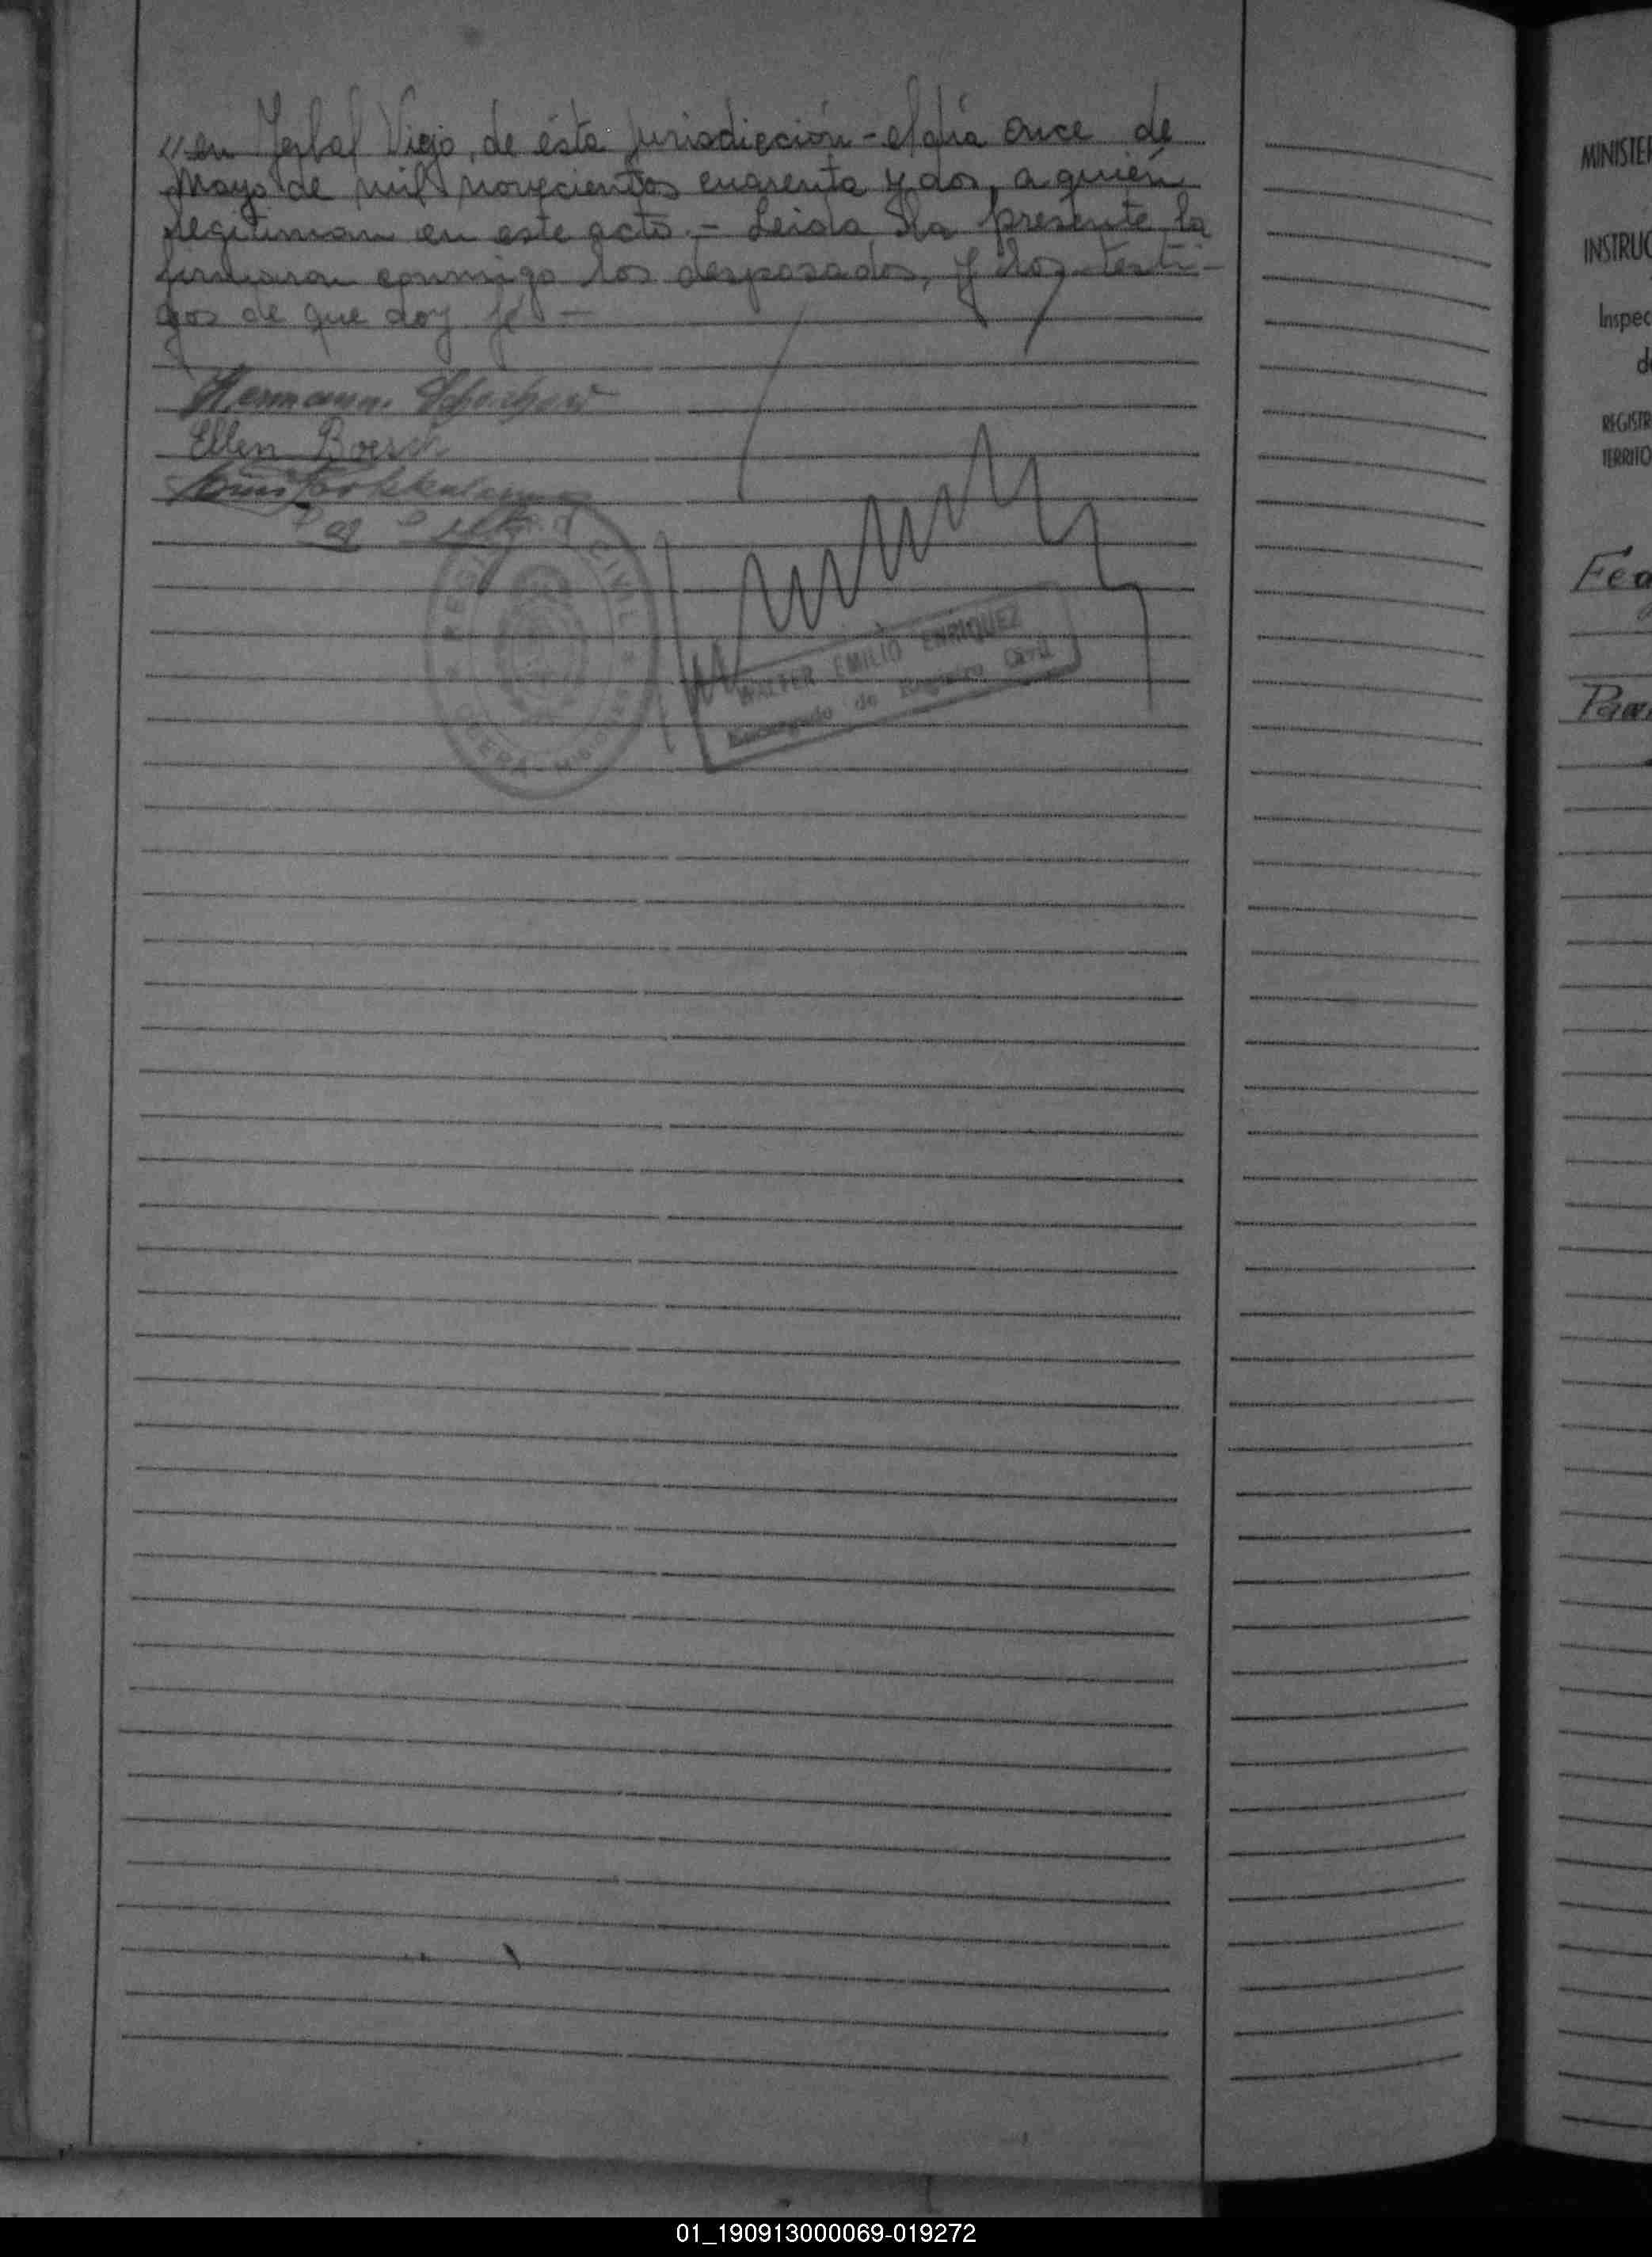 "en Yerbal Viejo, de ésta jurisdicción - el día once de
Mayo de mil novecientos cuarenta y dos, a quién
legitiman en este acto. - Leida la presente, la
firmaron conmigo los desposados, y los testi-
gos de que doy fé. -
Hermann
Ellen Boesch
REGISTRO CIVIL
OBERA - MISIONES
WALTER EMILIO ENRIQUEZ
Encargado de Registro Civil
MINISTER
INSTRUC
Inspec
de
REGISTR
TERRITO
Fea
Para
01_190913000069-019272